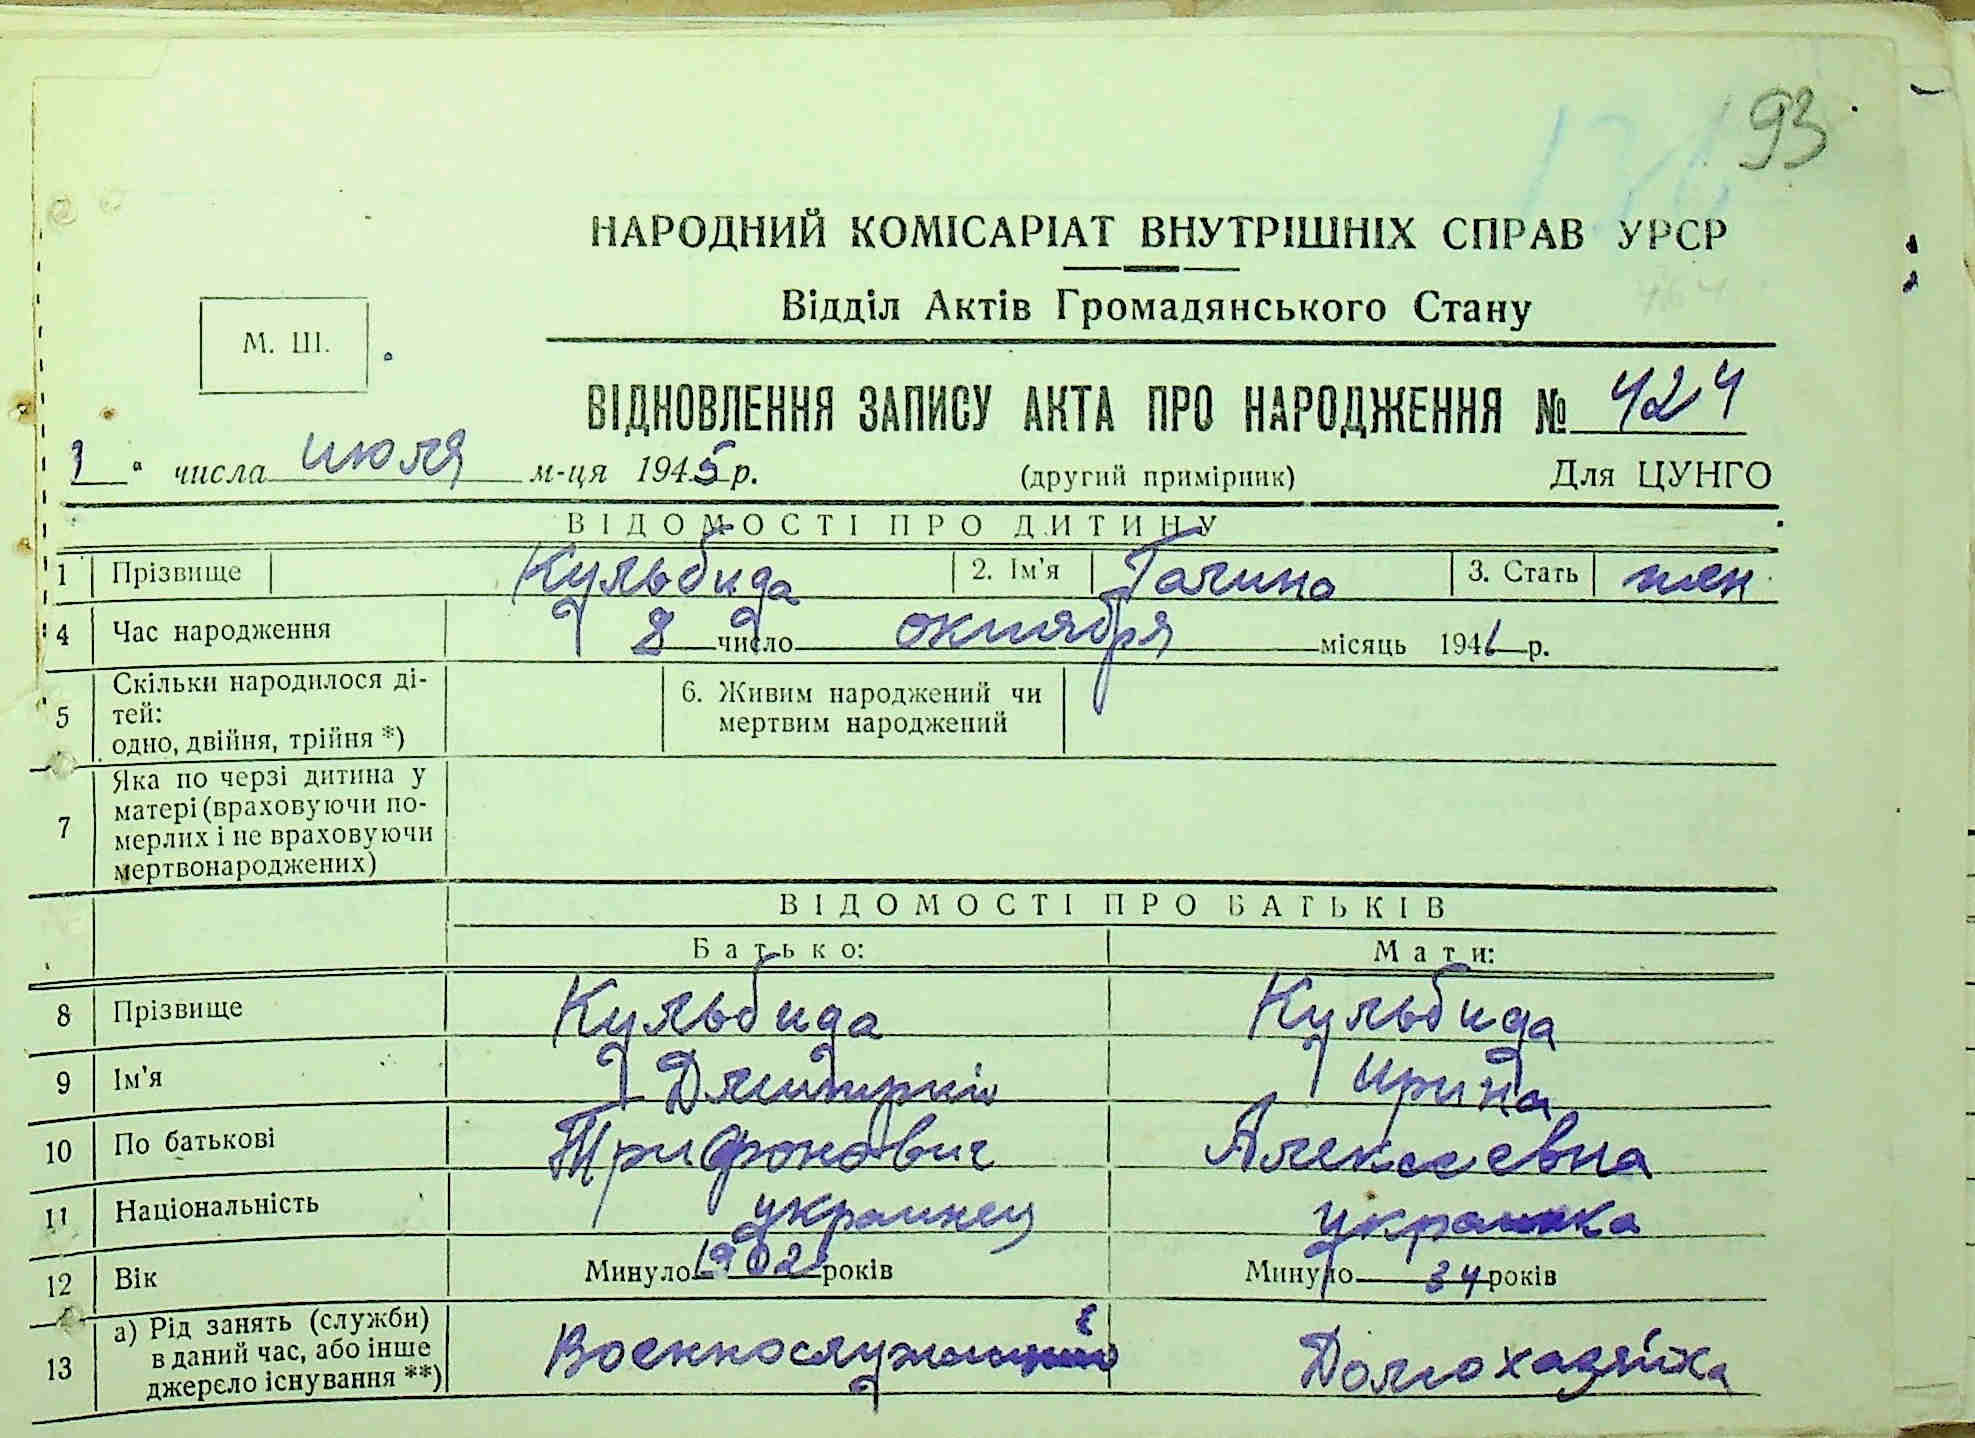 93
НАРОДНИЙ КОМІСАРІАТ ВНУТРІШНІХ СПРАВ УРСР
Відділ Актів Громадянського Стану
М. Ш.
ВІДНОВЛЕННЯ ЗАПИСУ АКТА ПРО НАРОДЖЕННЯ № 424
числа июля м-ця 1945 р. (другий примірник) Для ЦУНГО
ВІДОМОСТІ ПРО ДИТИНУ
1 Прізвище Кульбида 2. Ім'я Галина 3. Стать жен
4 Час народження 8 число октября місяць 1941 р.
5 Скільки народилося ді-
тей:
одно, двійня, трійня *)
6. Живим народжений чи
мертвим народжений
7 Яка по черзі дитина у
матері (враховуючи по-
мерлих і не враховуючи
мертвонароджених)
ВІДОМОСТІ ПРО БАТЬКІВ
Батько: Мати:
8 Прізвище Кульбида Кульбида
9 Ім'я Дмитрий Ирина
10 По батькові Трифонович Алексеевна
11 Національність украинец украинка
12 Вік Минуло 1902 років Минуло 34 років
13 а) Рід занять (служби)
в даний час, або інше
джерело існування **)
Военнослужащий Домохазяйка